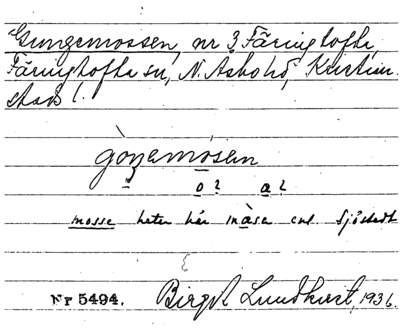 Gungemossen, nr 3 Färingtofta,
Färingtofta sn, N. Åsbo hd, Kristian-
stads l.
gòŋemósen
o? a?
mosse heter här måsa enl. Sjöstedt
Nr 5494. Birgit Lundkvist, 1936.